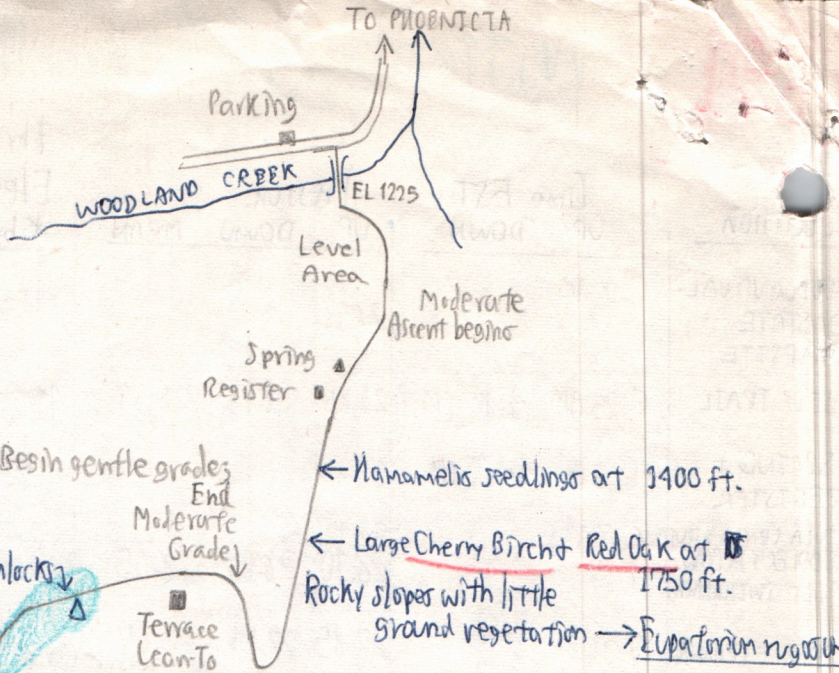 TO PHOENICIA
Parking
WOODLAND CREEK
EL 1225
Level
Area
Moderate
Ascent begins
Spring
Register
Begin gentle grade;
End
Moderate
Grade
← Hamamelis seedlings at 1400 ft.
← Large Cherry Birch + Red Oak at
1750 ft.
Rocky slopes with little
ground vegetation → Eupatorium rugosum
nlocks
Terrace
Lean-To